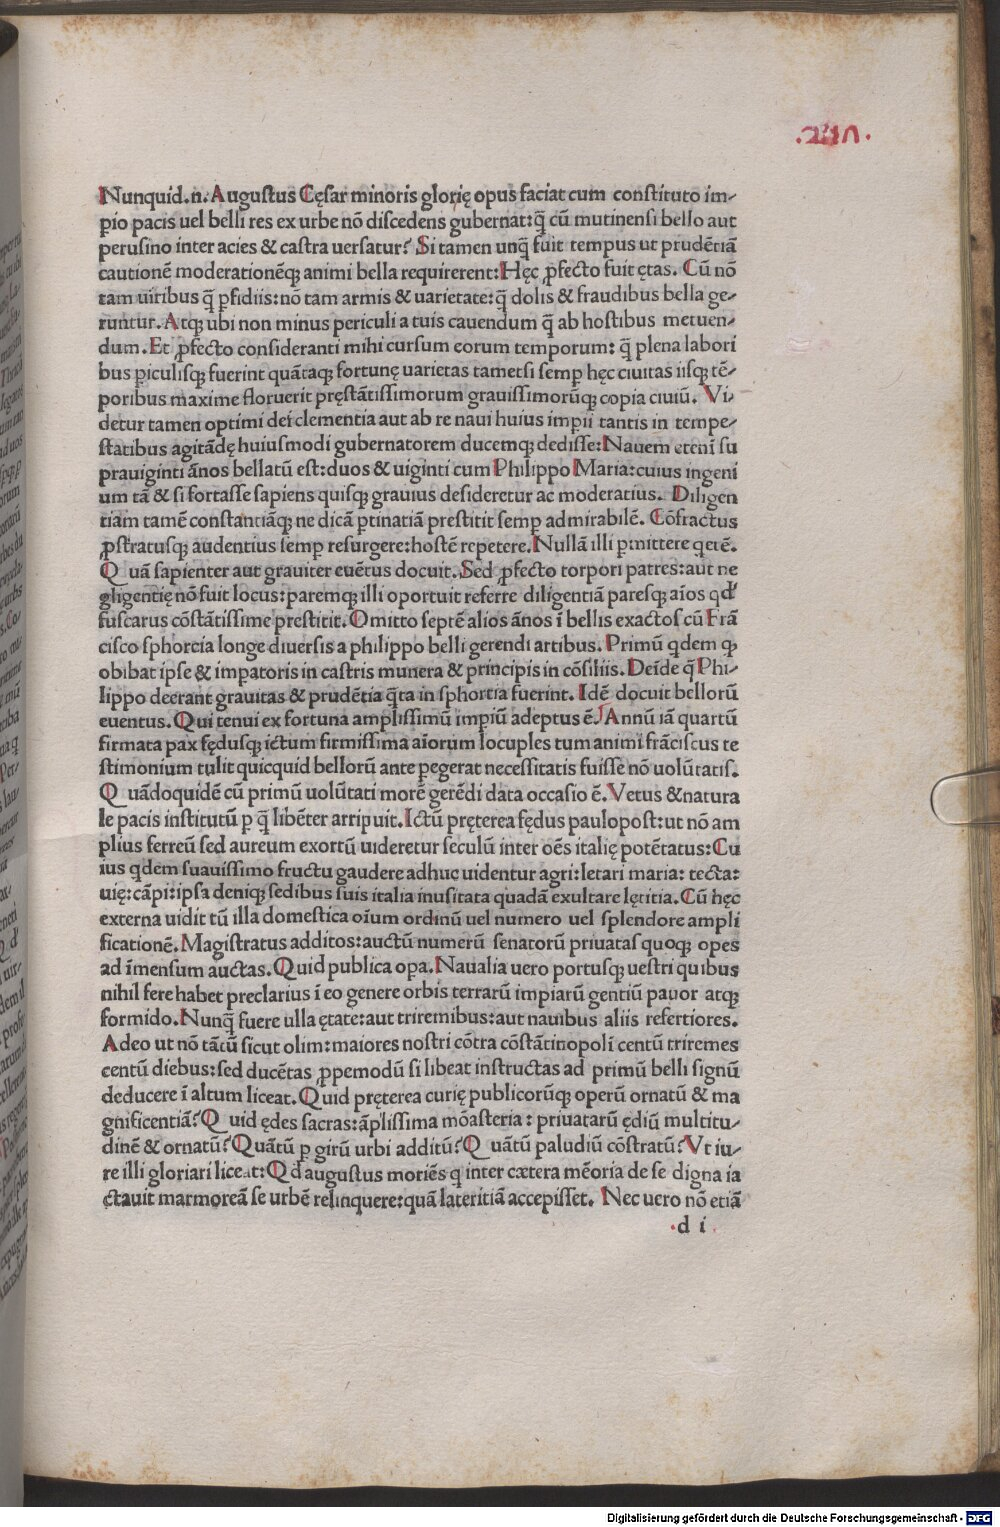 Nunquid.n. Augustus Cęsar minoris glorię opus faciat cum constituto im-
pio pacis uel belli res ex urbe nō discedens gubernat:q̄ cū mutinensi bello aut
perusino inter acies & castra uersatur? Si tamen unq̄ fuit tempus ut prudētiā
cautionē moderationēqꝫ animi bella requirerent:Hęc ꝓfecto fuit ętas. Cū nō
tam uiribus q̄ ꝑfidiis:nō tam armis & uarietate:q̄ dolis & fraudibus bella ge-
runtur. Atqꝫ ubi non minus periculi a tuis cauendum q̄ ab hostibus metuen-
dum. Et ꝓfecto consideranti mihi cursum eorum temporum: q̄ plena labori
bus ꝑiculisqꝫ fuerint quātaqꝫ fortunę uarietas tametsi semꝑ hęc ciuitas iisqꝫ tē-
poribus maxime floruerit pręstātissimorum grauissimorūqꝫ copia ciuiū. Vi-
detur tamen optimi dei clementia aut ab re naui huius impii tantis in tempe-
statibus agitādę huiusmodi gubernatorem ducemqꝫ dedisse:Nauem etenī su
prauiginti ānos bellatū est:duos & uiginti cum Philippo Maria:cuius ingeni
um tā & si fortasse sapiens quisqꝫ grauius desideretur ac moderatius. Diligen
tiam tamē constantiāqꝫ ne dicā ꝑtinatiā prestitit semꝑ admirabilē. Cōfractus
ꝓstratusqꝫ audentius semꝑ resurgere:hostē repetere. Nullā illi ꝑmittere q̄etē.
Q uā sapienter aut grauiter euētus docuit. Sed ꝓfecto torpori patres:aut ne
gligentię nō fuit locus:paremqꝫ illi oportuit referre diligentiā paresqꝫ aīos qd'
fuscarus cōstātissime prestitit. Omitto septē alios ānos ī bellis exactos cū Frā
cisco sphorcia longe diuersis a philippo belli gerendi artibus. Primū qdem qꝫ
obibat ipse & impatoris in castris munera & principis in cōsiliis. Deīde q̄ Phi-
lippo deerant grauitas & prudētia q̄ta in sphortia fuerint. Idē docuit bellorū
euentus. Qui tenui ex fortuna amplissimū imꝑiū adeptus ē. Annū iā quartū
firmata pax fędusqꝫ ictum firmissima aīorum locuples tum animi frāciscus te
stimonium tulit quicquid bellorū ante ꝑegerat necessitatis fuisse nō uolūtatis.
Q uādoquidē cū primū uolūtati morē gerēdi data occasio ē. Vetus & natura
le pacis institutū ꝑ q̄ libēter arripuit. Ictū pręterea fędus paulopost:ut nō am
plius ferreū sed aureum exortū uideretur seculū inter oēs italię potētatus:Cu
ius qdem suauissimo fructu gaudere adhuc uidentur agri:letari maria: tecta:
uię:cāpi:ipsa deniqꝫ sedibus suis italia inusitata quadā exultare lętitia. Cū hęc
externa uidit tū illa domestica oīum ordinū uel numero uel splendore ampli
ficationē. Magistratus additos:auctū numerū senatorū priuatas quoqꝫ opes
ad īmensum auctas. Quid publica oꝑa. Naualia uero portusqꝫ uestri quibus
nihil fere habet preclarius ī eo genere orbis terrarū impiarū gentiū pauor atqꝫ
formido. Nunq̄ fuere ulla ętate:aut triremibus:aut nauibus aliis refertiores.
Adeo ut nō tātū sicut olim:maiores nostri cōtra cōstātinopolī centū triremes
centū diebus:sed ducētas ꝓpemodū si libeat instructas ad primū belli signū
deducere ī altum liceat. Quid pręterea curię publicorūqꝫ operū ornatū & ma
gnificentiā? Q uid ędes sacras:āplissima mōasteria: priuatarū ędiū multitu-
dinē & ornatū? Quātū ꝑ girū urbi additū? Q uātū paludiū cōstratū? Vt iu-
re illi gloriari liceat:Qd augustus moriēs q inter cætera mēoria de se digna ia
ctauit marmoreā se urbē relinquere:quā lateritiā accepisset. Nec uero nō etiā
.d i
Digitalisierung gefördert durch die Deutsche Forschungsgemeinschaft - DFG